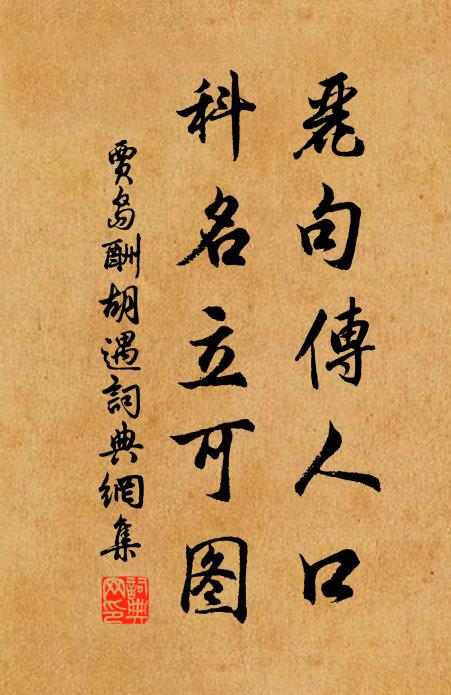 麗句傳人口
科名立可图
賈島酬胡遇詞典網集
詞典网印